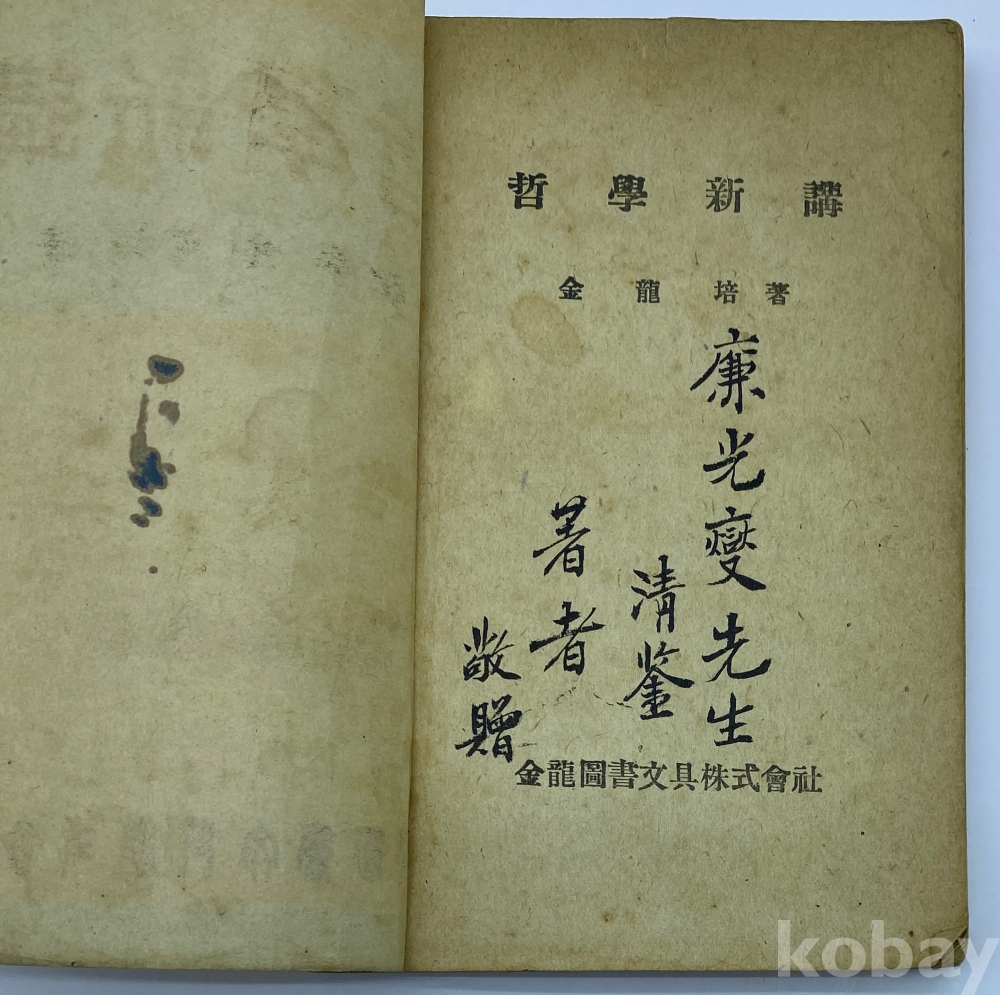 哲學新講
金龍培著
廉光燮先生
清鉴
著者
敬贈
金龍圖書文具株式會社
kobay